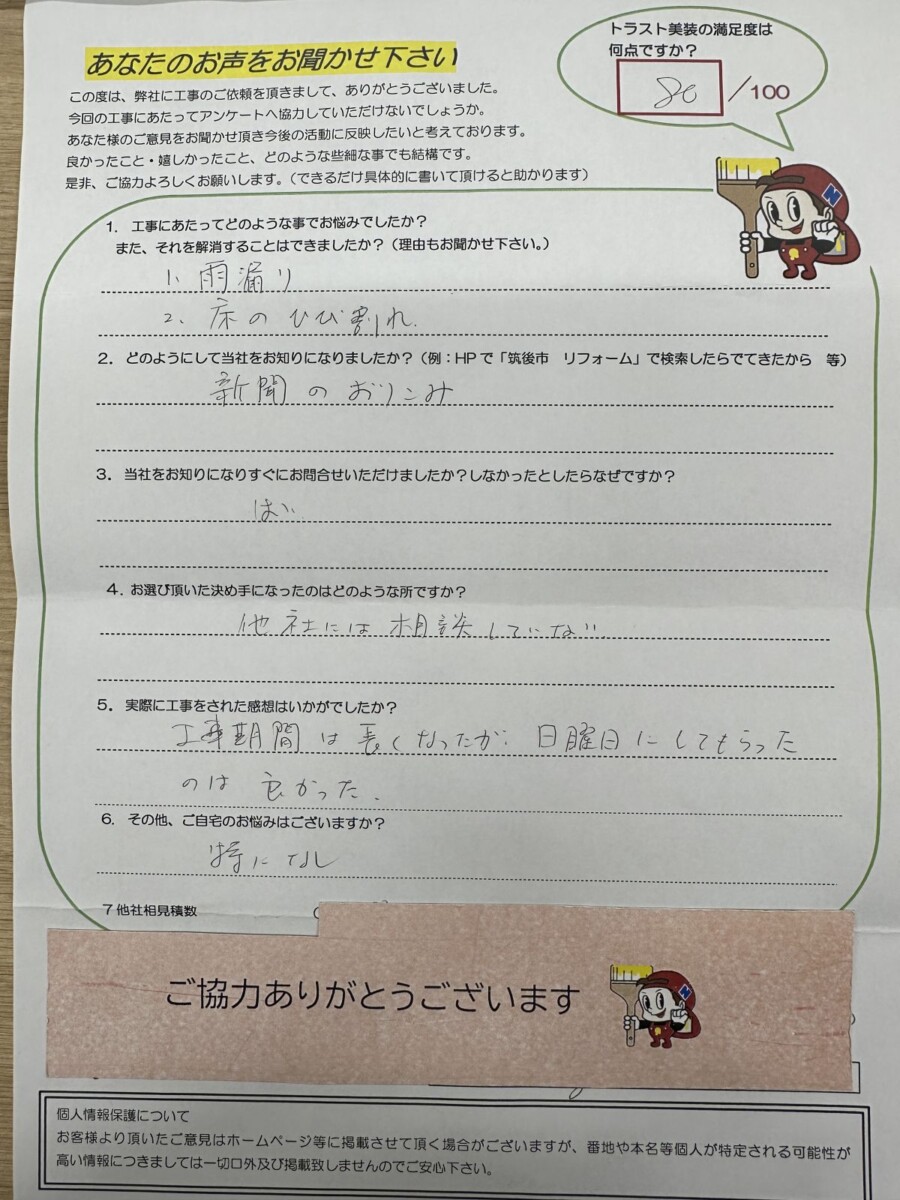 あなたのお声をお聞かせ下さい
トラスト美装の満足度は
何点ですか?
80 /100
この度は、弊社に工事のご依頼を頂きまして、ありがとうございました。
今回の工事にあたってアンケートへ協力していただけないでしょうか。
あなた様のご意見をお聞かせ頂き今後の活動に反映したいと考えております。
良かったこと・嬉しかったこと、どのような些細な事でも結構です。
是非、ご協力よろしくお願いします。(できるだけ具体的に書いて頂けると助かります)
N
1. 工事にあたってどのような事でお悩みでしたか?
また、それを解消することはできましたか?(理由もお聞かせ下さい。)
1、雨漏り
2、床のひび割れ.
2. どのようにして当社をお知りになりましたか?(例:HPで「筑後市 リフォーム」で検索したらでてきたから 等)
新聞のおりこみ
3. 当社をお知りになりすぐにお問合せいただけましたか?しなかったとしたらなぜですか?
はい
4. お選び頂いた決め手になったのはどのような所ですか?
他社には相談していない.
5. 実際に工事をされた感想はいかがでしたか?
工事期間は長くなったが、日曜日にしてもらった
のは良かった.
6. その他、ご自宅のお悩みはございますか?
特になし
7 他社相見積数
ご協力ありがとうございます
N
個人情報保護について
お客様より頂いたご意見はホームページ等に掲載させて頂く場合がございますが、番地や本名等個人が特定される可能性が
高い情報につきましては一切口外及び掲載致しませんのでご安心下さい。